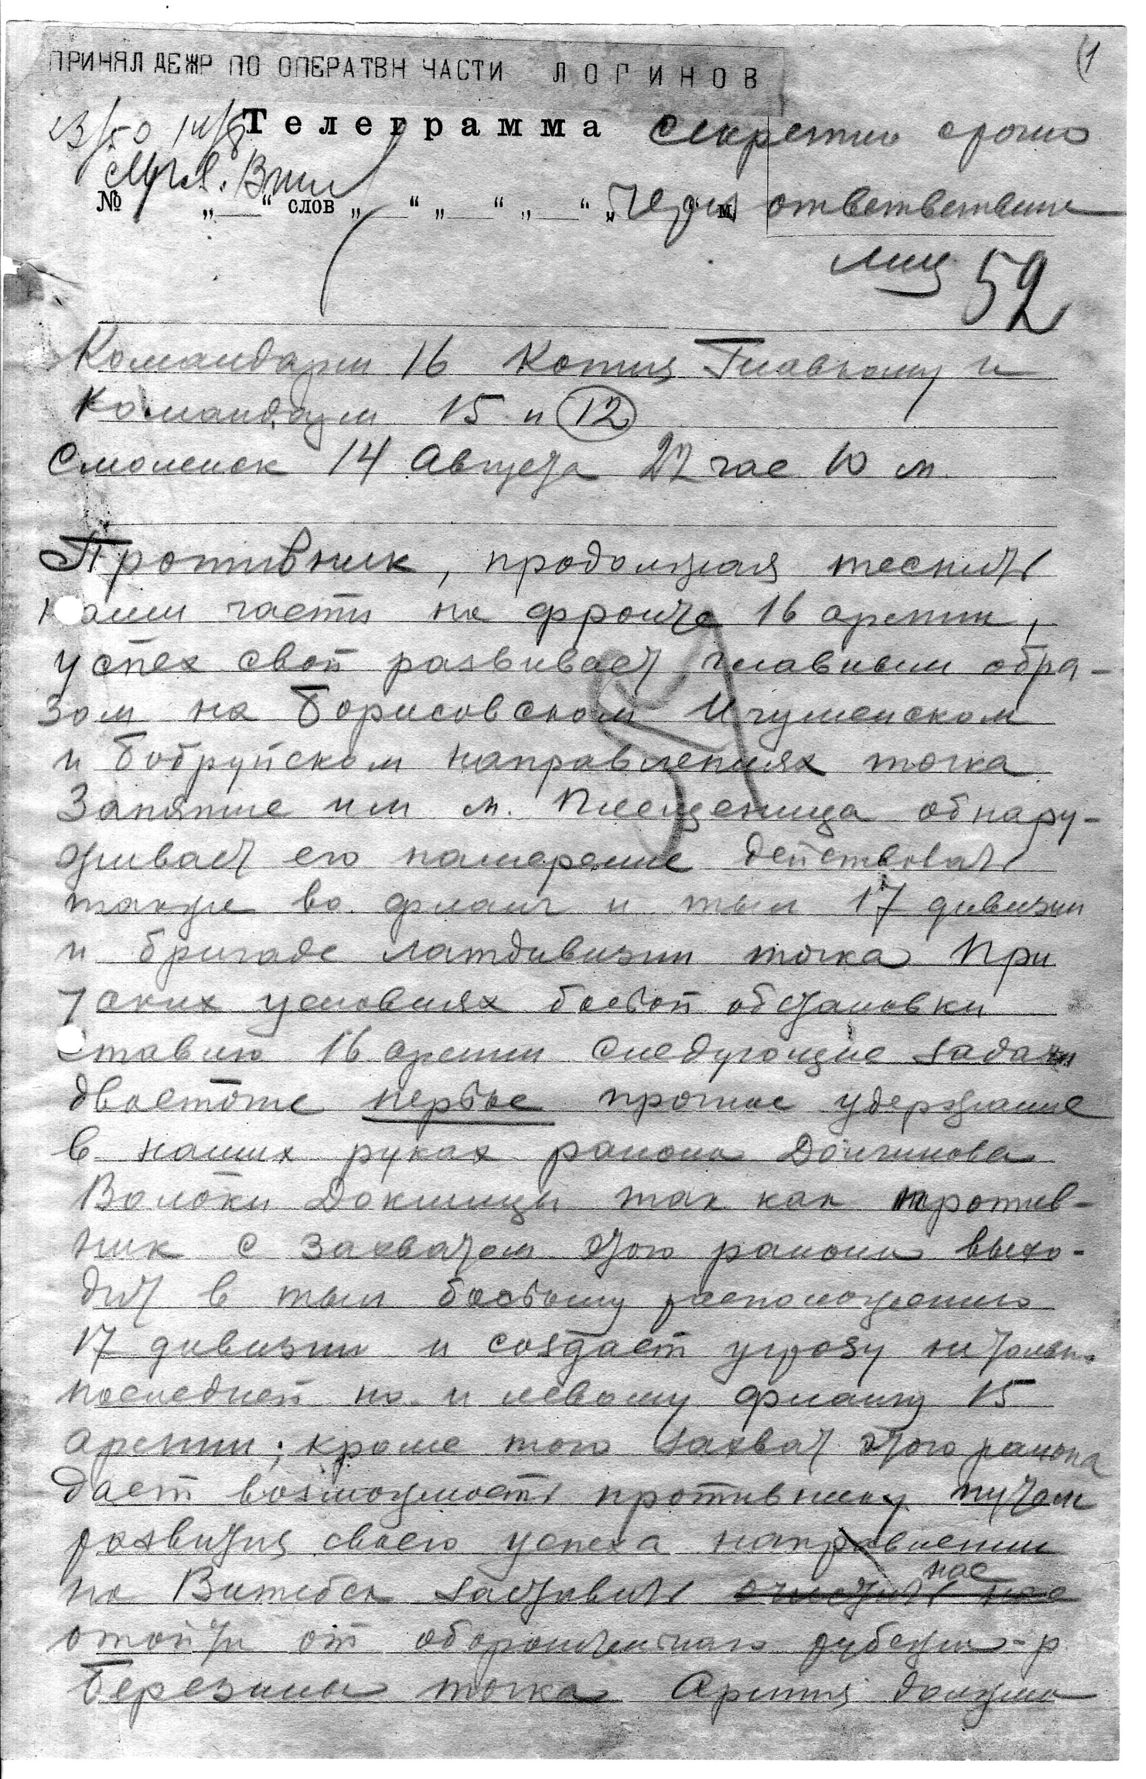 ПРИНЯЛ ДЕЖР ПО ОПЕРАТВН ЧАСТИ ЛОГИНОВ
1
23/50 14/8 Телеграмма Секретно срочно
№ „ “ слов „ “ „ “ „ “ „ “ м ответственн
лиц 52
Командарм 16 Копия Главкому и
Командарм 15 и 12
Смоленск 14 Августа 22 час 10 м
Противник, продолжая теснить
наши части на фронте 16 армии,
успех свой развивает главным обра-
зом на Борисовском Игуменском
и Бобруйском направлениях точка
Занятие им м. Плещеница обнару-
живает его намерение действовать
также во фланг и тыл 17 дивизии
и бригаде латдивизии точка При
таких условиях боевой обстановки
ставлю 16 армии следующие задачи
двоеточие первое прочное удержание
в наших руках района Долгинова
Волоки Докшицы так как против-
ник с захватом этого района выхо-
дит в тыл боевому расположению
17 дивизии и создает угрозу не только
последней но и левому флангу 15
армии; кроме того захват этого района
дает возможность противнику путем
развития своего успеха направлении
на Витебск заставить нас
отойти от оборонительного рубежа - р
Березины точка Армия должна